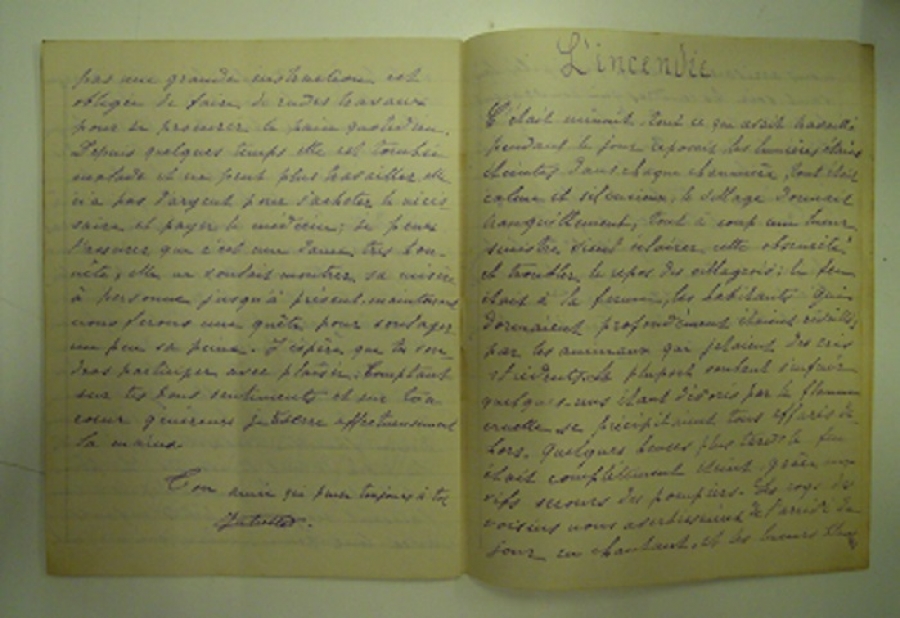 pas une grande instruction est
obligée de faire de rudes travaux
pour se procurer le pain quotidien.
Depuis quelques temps elle est tombée
malade et ne peut plus travailler elle
n'a pas d'argent pour s'acheter le néces-
saire et payer le médecin; je peux
t'assurer que c'est une dame très hon-
nête, elle ne voulait montrer sa misère
à personne jusqu'à présent, maintenant
nous ferons une quête pour soulager
un peu sa peine. J'espère que tu vou-
dras participer avec plaisir. Comptant
sur tes bons sentiments et sur ton
cœur généreux je te serre affectueusement
la main.
Ton amie qui pense toujours à toi
L'incendie
C'était minuit, tout ce qui avait travaillé
pendant le jour reposait les lumières étaient
éteintes dans chaque chaumière, tout était
calme et silencieux, le village dormait
tranquillement, tout à coup une lueur
sinistre vient éclairer cette obscurité
et troubler le repos des villageois: le feu
était à la ferme, les habitants qui
dormaient profondément étaient réveillés
par les animaux qui jetaient des cris
stridents, la plupart voulant s'enfuir
quelques-uns étant dévorés par la flamme
cruelle se précipitaient tous effarés de-
hors. Quelques heures plus tard le feu
était complètement éteint, grâce aux
vifs secours des pompiers. Les coqs des
voisins nous avertissaient de l'arrivée du
jour en chantant, et les lueurs